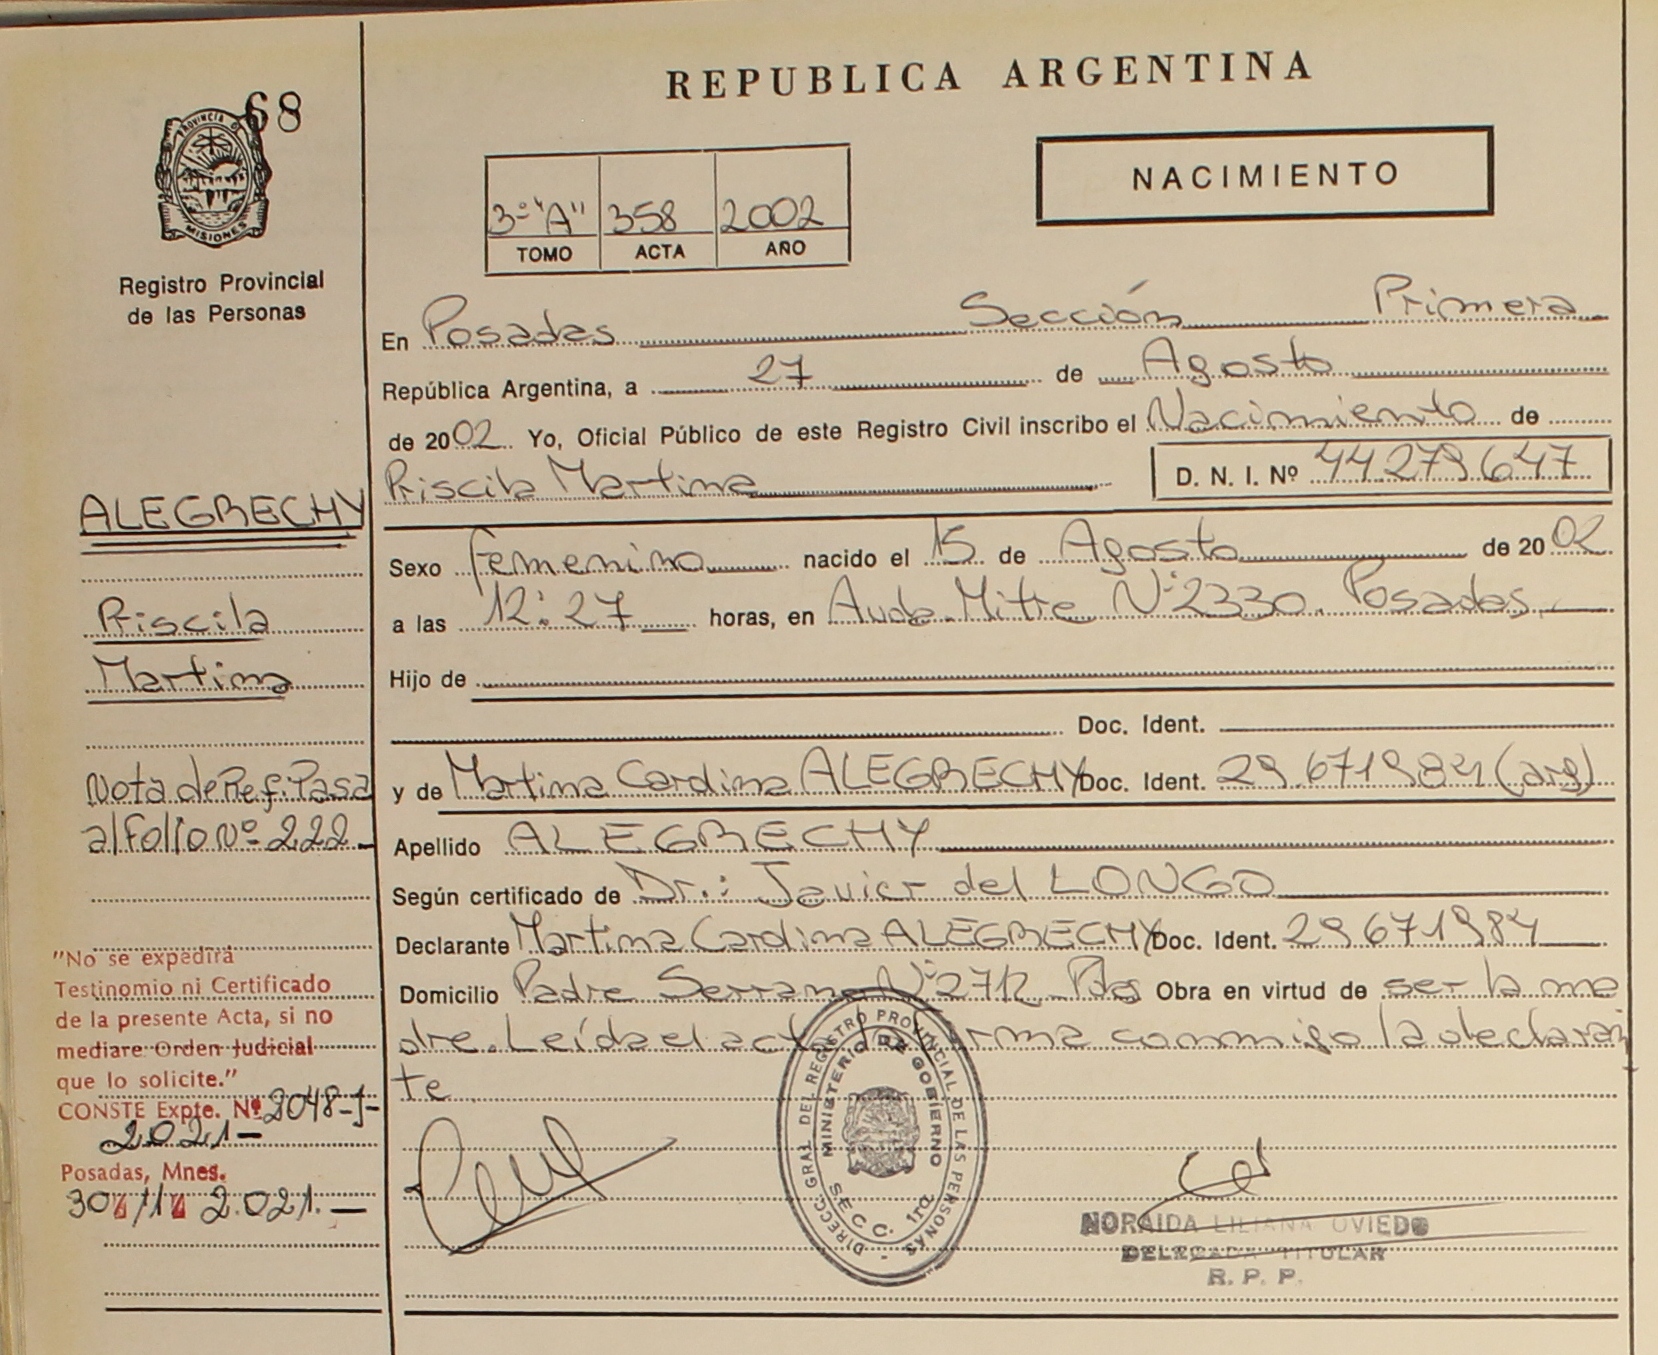 REPUBLICA ARGENTINA
68
PROVINCIA D
MISIONES
Registro Provincial
de las Personas
NACIMIENTO
3º "A" 358 2002
TOMO ACTA AÑO
En Posadas Sección Primera
República Argentina, a 27 de Agosto
de 2002 Yo, Oficial Público de este Registro Civil inscribo el Nacimiento de
Priscila Martina D. N. I. Nº 44.279.647
ALEGRECHY
Priscila
Martina
Sexo femenino nacido el 15 de Agosto de 2002
a las 12:27 horas, en Avda. Mitre Nº 2330. Posadas.
Hijo de
Doc. Ident.
y de Martina Carolina ALEGRECHY Doc. Ident. 29.671.984 (arg)
Apellido ALEGRECHY
Según certificado de Dr.: Javier del LONGO
Declarante Martina Carolina ALEGRECHY Doc. Ident. 29.671.984
Domicilio Padre Serrano Nº 2712 Pdas Obra en virtud de ser la ma
dre. Leída el acta la firma conmigo la declaran
te
Nota de Ref. Pasa
al Folio Nº 222
"No se expedirá
Testinomio ni Certificado
de la presente Acta, si no
mediare Orden Judicial
que lo solicite."
CONSTE Expte. Nº 2048-J-
2021-
Posadas, Mnes.
30/11/2.021.
DIRECC. GRAL. DEL REGISTRO PROVINCIAL DE LAS PERSONAS
MINISTERIO DE GOBIERNO
SECC. 1ra.
NORAIDA LILIANA OVIEDO
DELEGADA TITULAR
R. P. P.